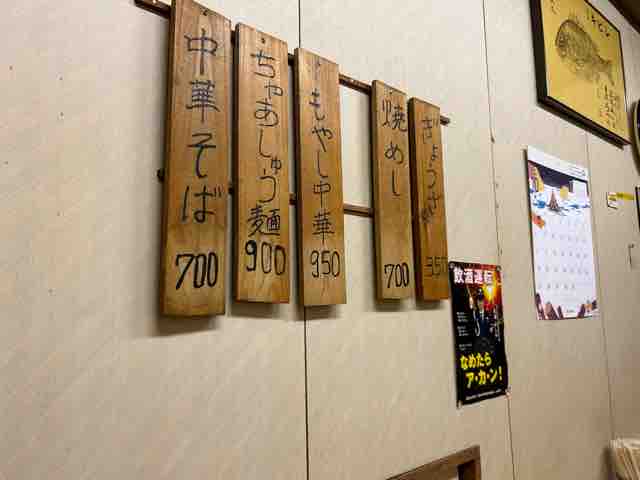 中華そば
700
ちゃあしゅう麺
900
もやし中華
950
焼めし
700
ぎょうざ
350
飲酒運転
なめたら
ア・カ・ン!